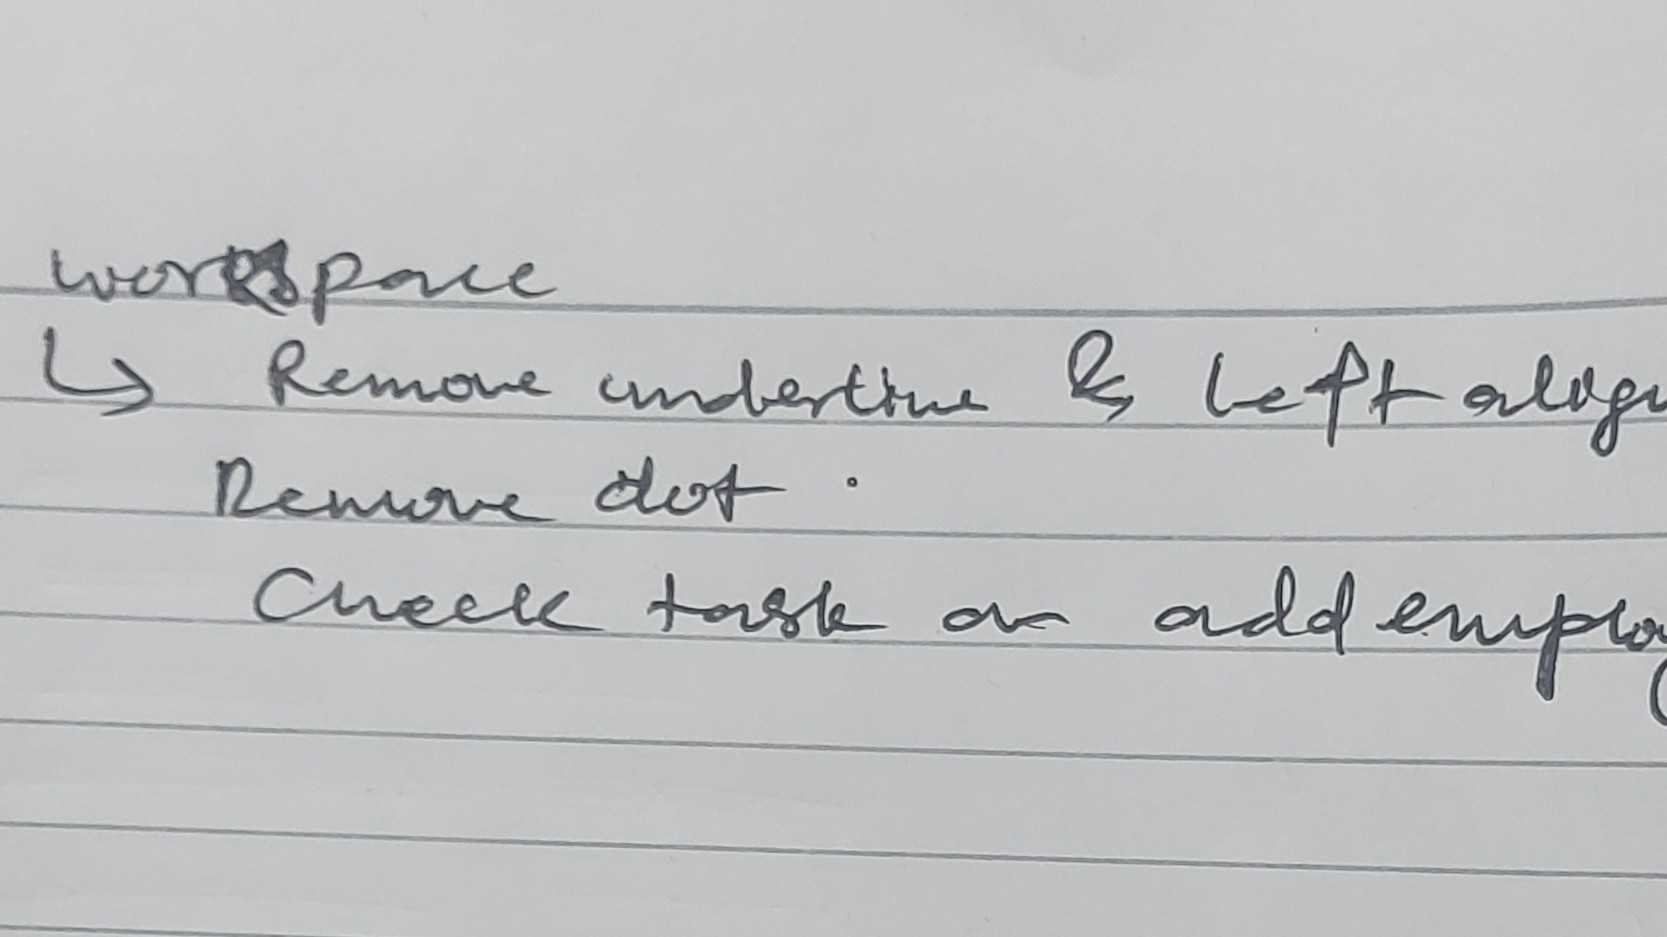 workspace
↳ Remove underline & Left align
Remove dot .
Check task on add emplo